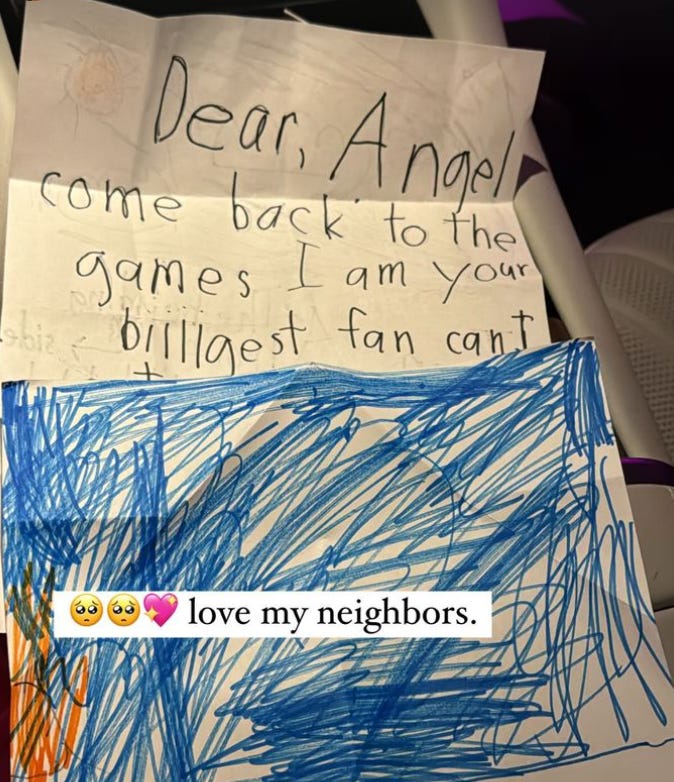 Dear, Angel
come back to the
games I am your
billlgest fan cant
🥺🥺💖 love my neighbors.